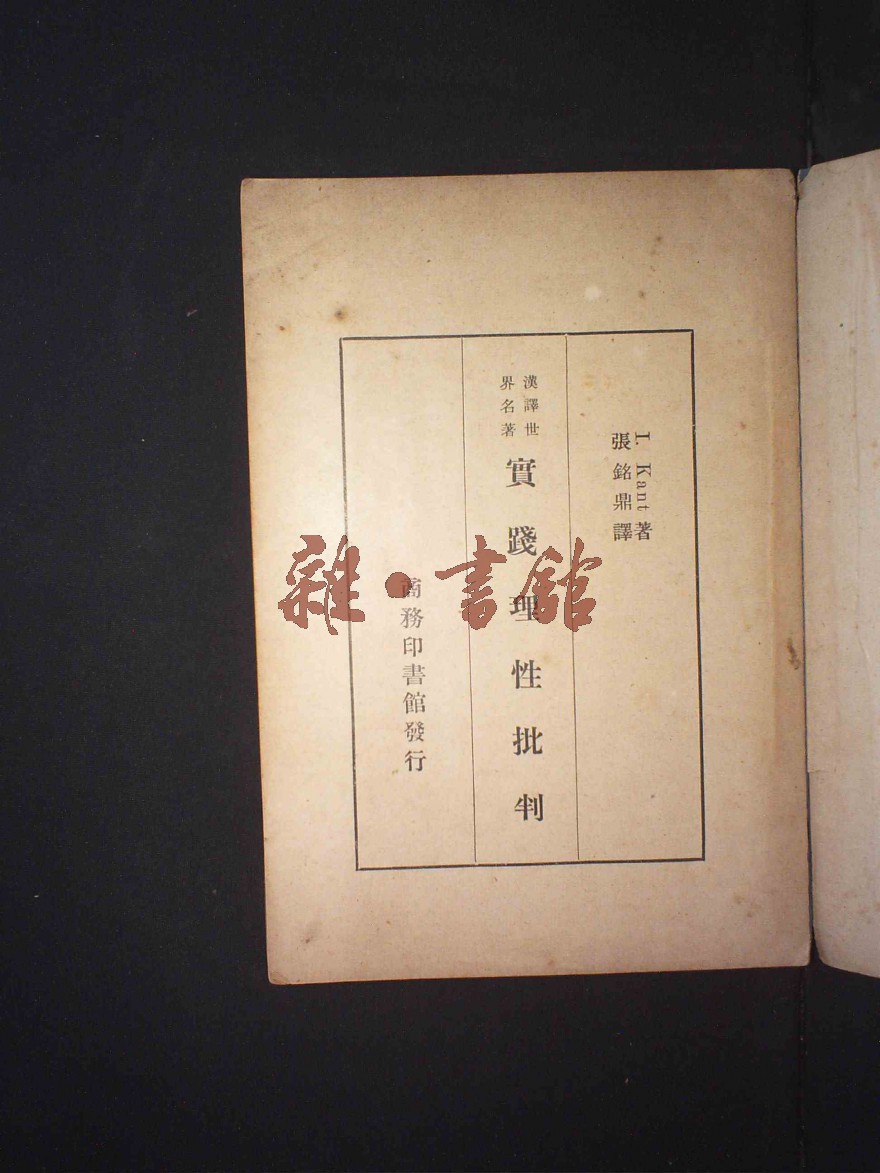 I. Kant著
張銘鼎譯
漢譯世
界名著
實踐理性批判
商務印書館發行
雜·書館